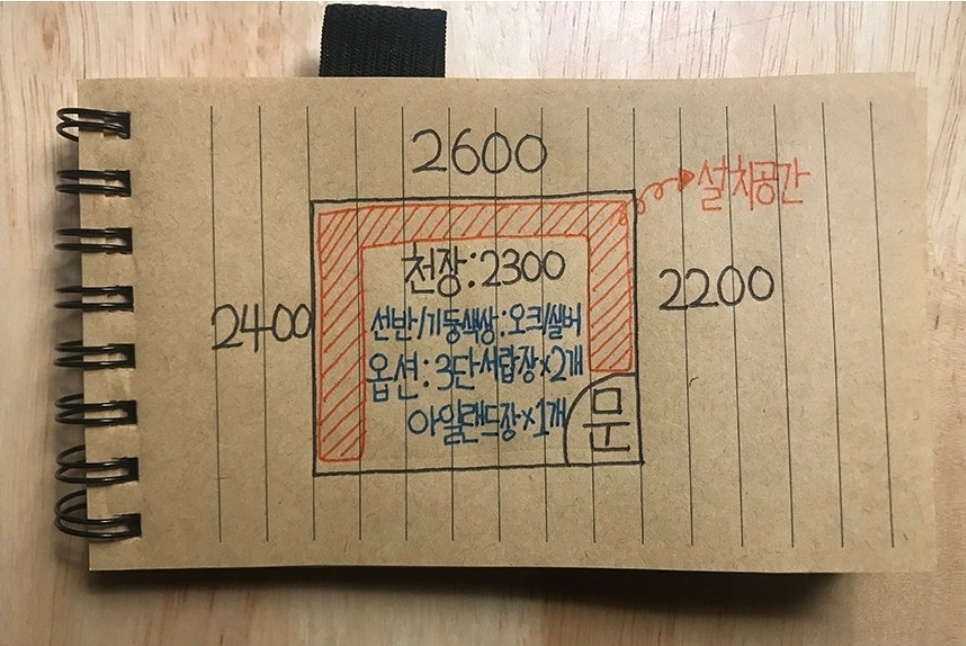 2600
설치공간
천장:2300
2400
2200
선반/기둥색상:오크/실버
옵션:3단서랍장x2개
아일랜드장x1개
문